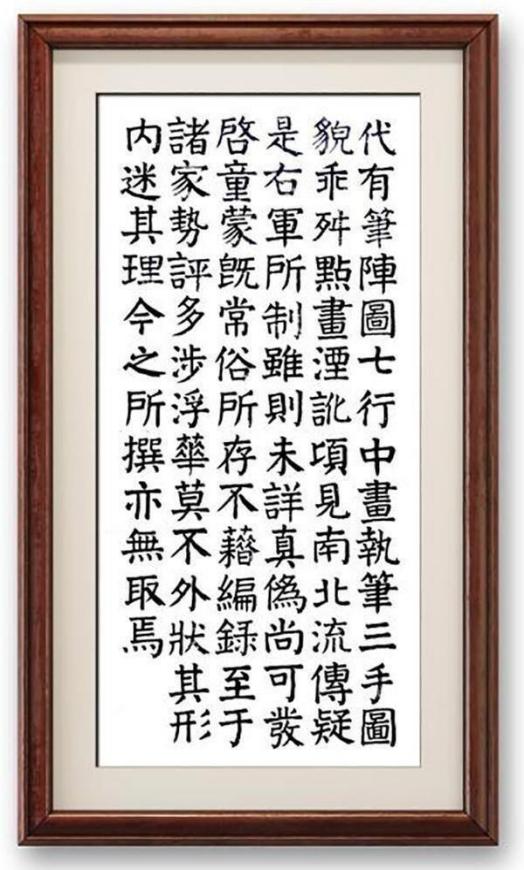 代有筆陣圖七行中畫執筆三手圖
貌乖舛點畫湮訛頃見南北流傳疑
是右軍所制雖則未詳真僞尚可發
啓童蒙既常俗所存不藉編錄至于
諸家勢評多涉浮華莫不外狀其形
内迷其理今之所撰亦無取焉